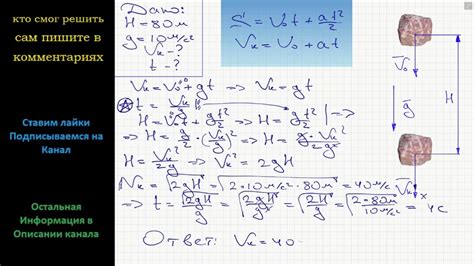 кто смог решить
сам пишите в
комментариях
Ставим лайки
Подписываемся на
Канал
Остальная
Информация в
Описании канала
Дано:
H = 80 м
g = 10 м/с²
Vк - ?
t - ?
S = V₀t + at²/2
Vк = V₀ + at
Vк = V₀⁰ + gt ⇒ Vк = gt
t = Vк/g
H = V₀⁰t + gt²/2 ⇒ H = gt²/2 | ⇒
⇒ H = g/2 · (Vк/g)² ⇒ H = g · Vк²/2g²
H = Vк²/2g ⇒ Vк² = 2gH
Vк = √2gH = √2·10 м/с²·80 м = 40 м/с
⇒ t = √2gH/g = √2gH/g² = √2H/g = √2·80 м/10 м/с² = 4 с
Ответ: Vк = 40
V₀
g
H
Vк
x